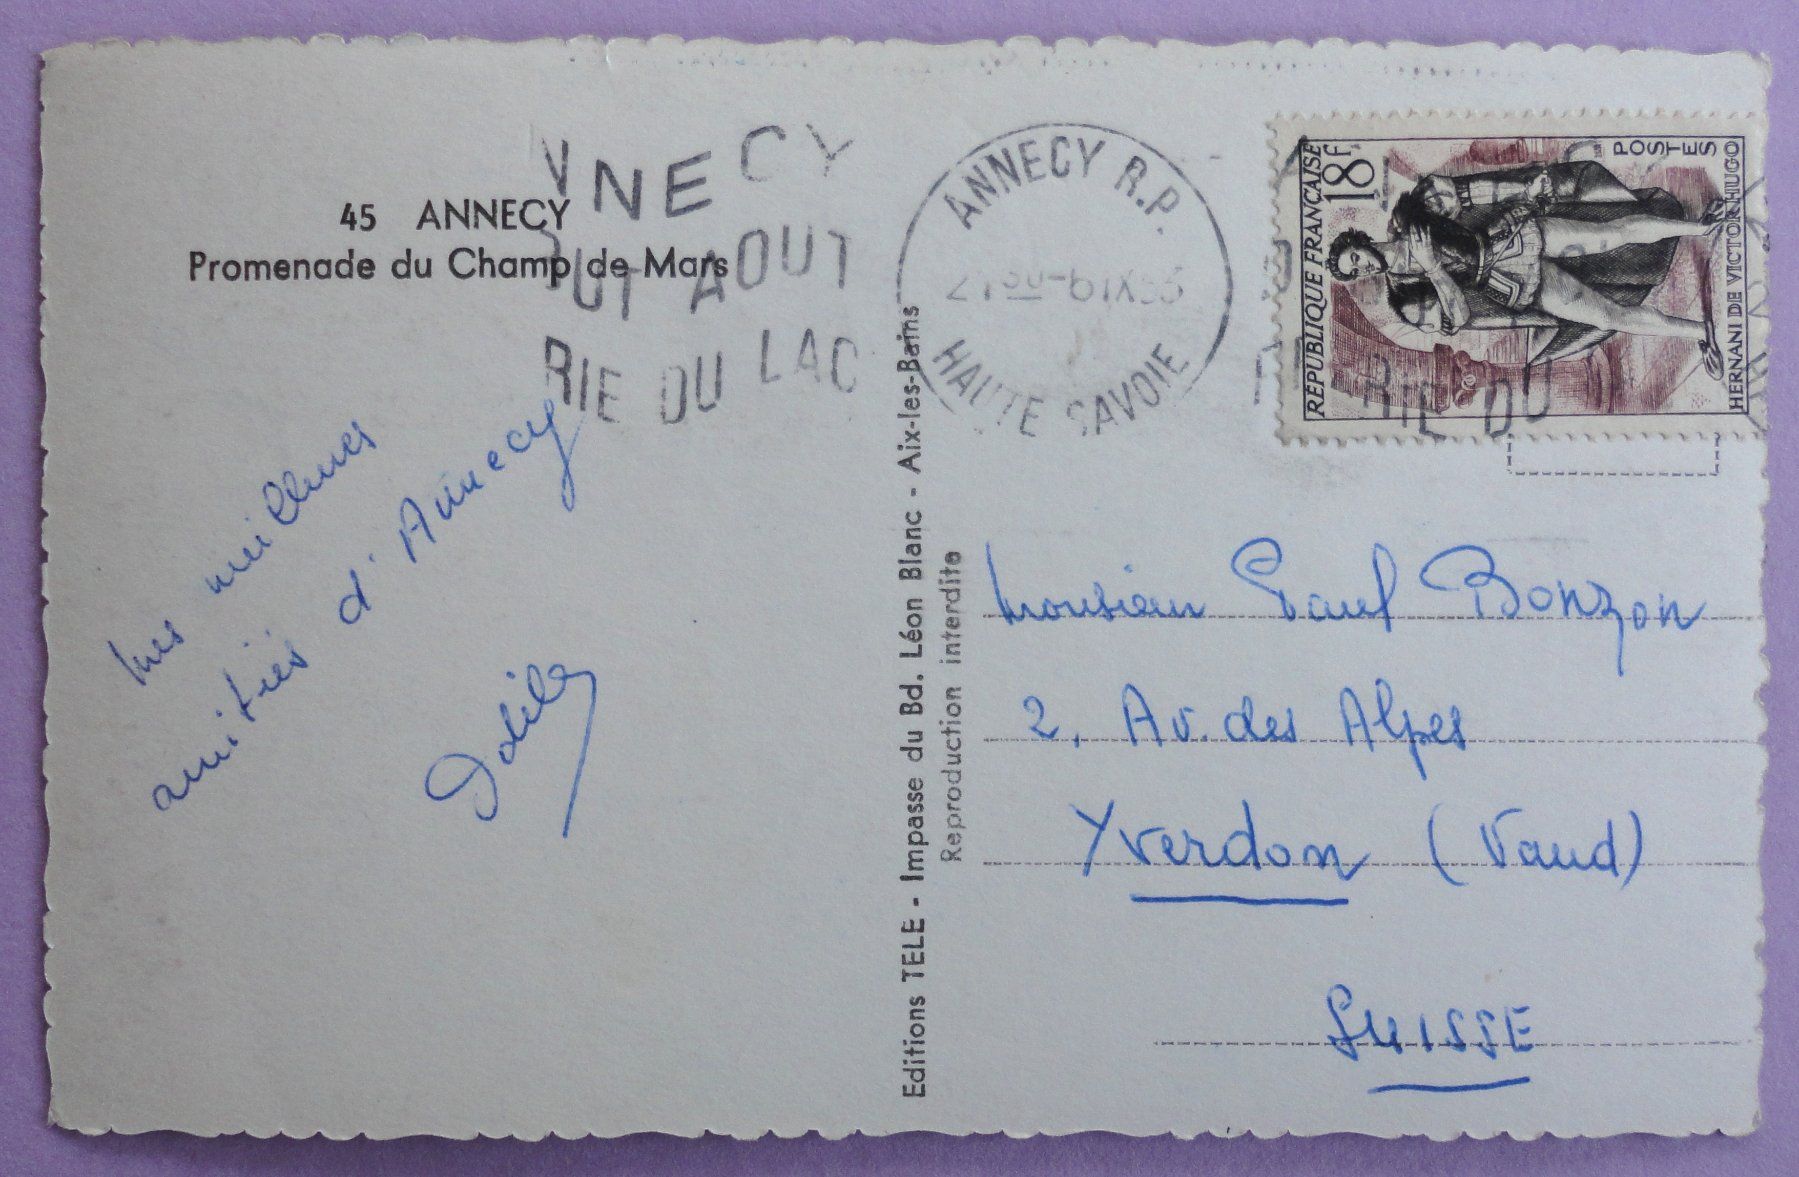 45 ANNECY
Promenade du Champ de Mars
NNECY
OUT AOUT
RIE DU LAC
ANNECY R.P.
HAUTE SAVOIE
REPUBLIQUE FRANÇAISE
18F
POSTES
HERNANI DE VICTOR HUGO
RIE DU
mes meilleures
amitiés d'Annecy
Editions TELE - Impasse du Bd. Léon Blanc - Aix-les-Bains
Reproduction interdite
Monsieur Paul Bonzon
2, Av. des Alpes
Yverdon (Vaud)
SUISSE